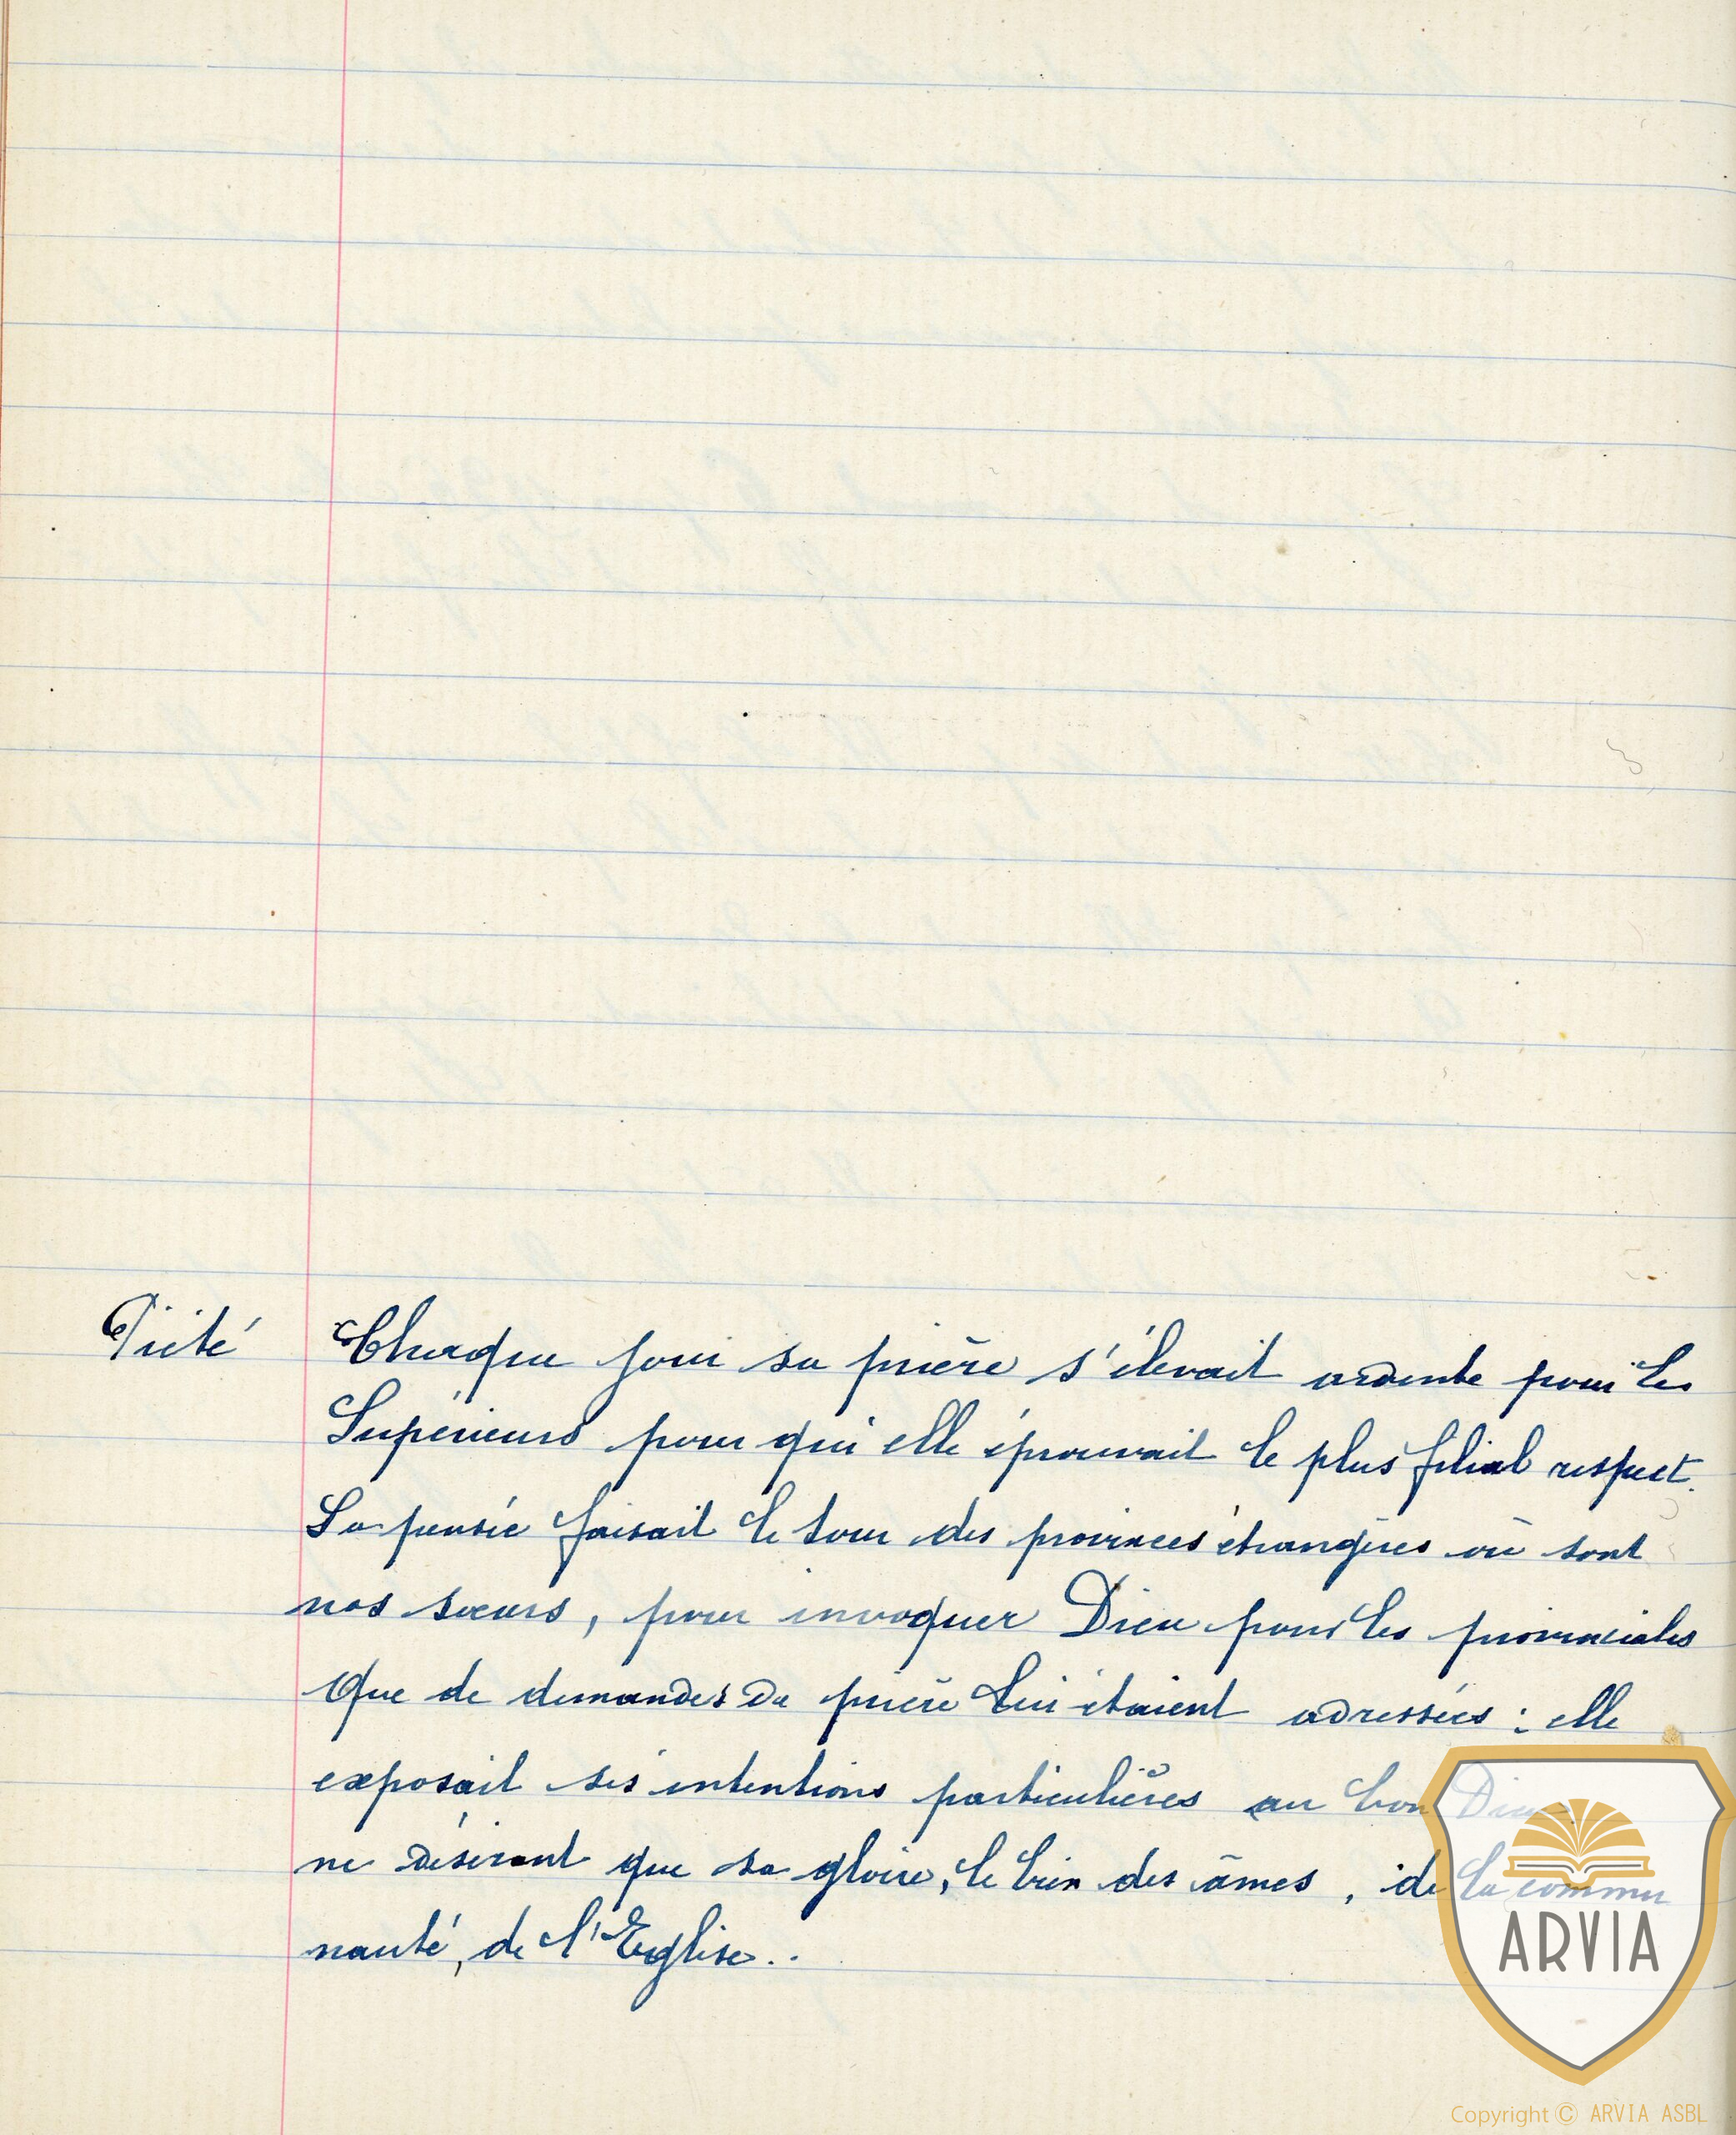 Piété Chaque jour sa prière s'élevait ardente pour les
Supérieurs pour qui elle éprouvait le plus filial respect.
Sa pensée faisait le tour des provinces étrangères où sont
nos sœurs, pour invoquer Dieu pour les provinciales
Que de demandes de prière lui étaient adressées : elle
exposait ses intentions particulières au bon Dieu
ne désirant que sa gloire, le bien des âmes, de la commu
nauté, de l'Eglise..
ARVIA
Copyright © ARVIA ASBL